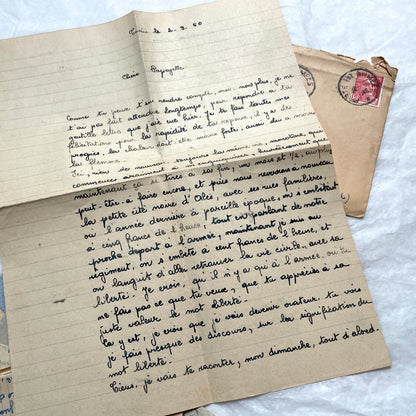 le 2.9.50
Chère
Comme tu peux t'en rendre compte, moi, non plus, je ne
t'ai pas fait attendre longtemps, pour répondre à ta
gentille lettre que j'ai eue hier. Je te fais toutes mes
félicitations pour la rapidité de ta réponse, il y a des
presque la chaleur doit être moins forte, aussi tu a moins
la flemme.
Ici, rien de nouveau toujours la même vie, monotone, que
maintenant ça se tire à sa fin, un mois et 1/2, au plus
peut-être à faire encore, et puis nous reverrons à nouveau
la petite ville noire d'Alès, avec ses rues familières,
ou l'année dernière à pareille époque, on s'embêtait
à cinq francs de l'heure, tout en parlant de notre
proche départ à l'armée, maintenant je suis au
régiment, on s'embête à cent francs de l'heure, et
on languit d'aller retrouver la vie civile, avec sa
liberté. Je crois, qu'il n'y a qu'à l'armée, ou tu
ne fais pas ce que tu veux, que tu apprécies à sa
juste valeur le mot liberté.
Ça y est, je crois que je vais devenir orateur. tu vois
je fais presque des discours, sur la signification du
mot liberté.
Tiens, je vais te raconter, mon dimanche, tout d'abord.